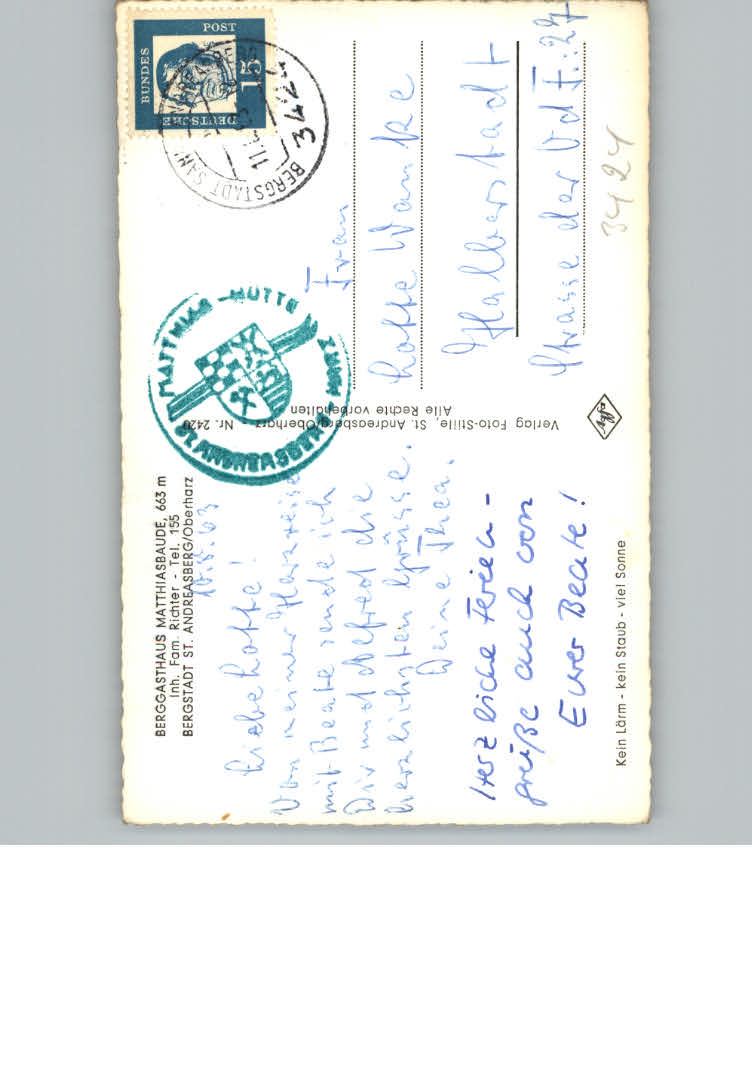 BERGGASTHAUS MATTHIASBAUDE, 663 m
Inh. Fam. Richter - Tel. 155
BERGSTADT ST. ANDREASBERG/Oberharz
10.8.63
Liebe Lotte!
Von meiner Harzreise
mit Beate sende ich
Dir und die
herzlichsten Grüsse.
Deine Thea.
Herzliche Ferien-
grüße auch von
Eurer Beate!
Kein Lärm - kein Staub - viel Sonne
Verlag Foto-Stille, St. Andreasberg/Oberharz - Nr. 2420
Alle Rechte vorbehalten
Agfa
MATTHIAS-HÜTTE
ST. ANDREASBERG-HARZ
DEUTSCHE
BUNDES
POST
15
BERGSTADT SAN
3424
Frau
Lotte Wamke
Halberstadt
Strasse der VdF.: 27
3424